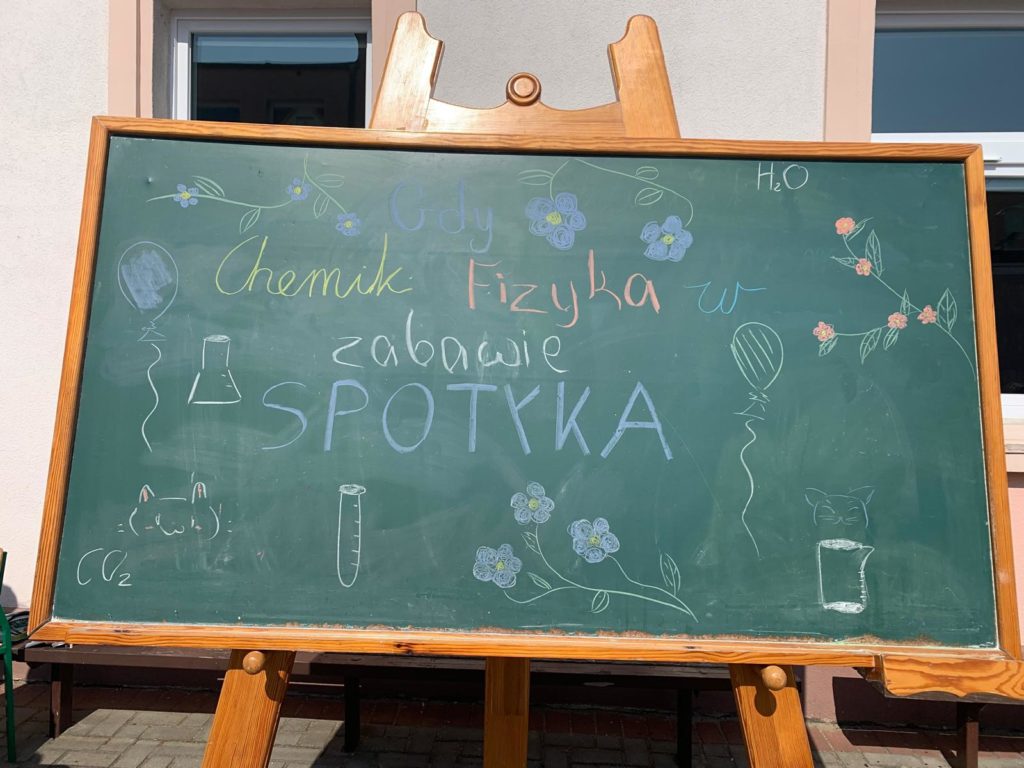 H₂O
Gdy
Chemik Fizyka w
zabawie
SPOTYKA
CO₂